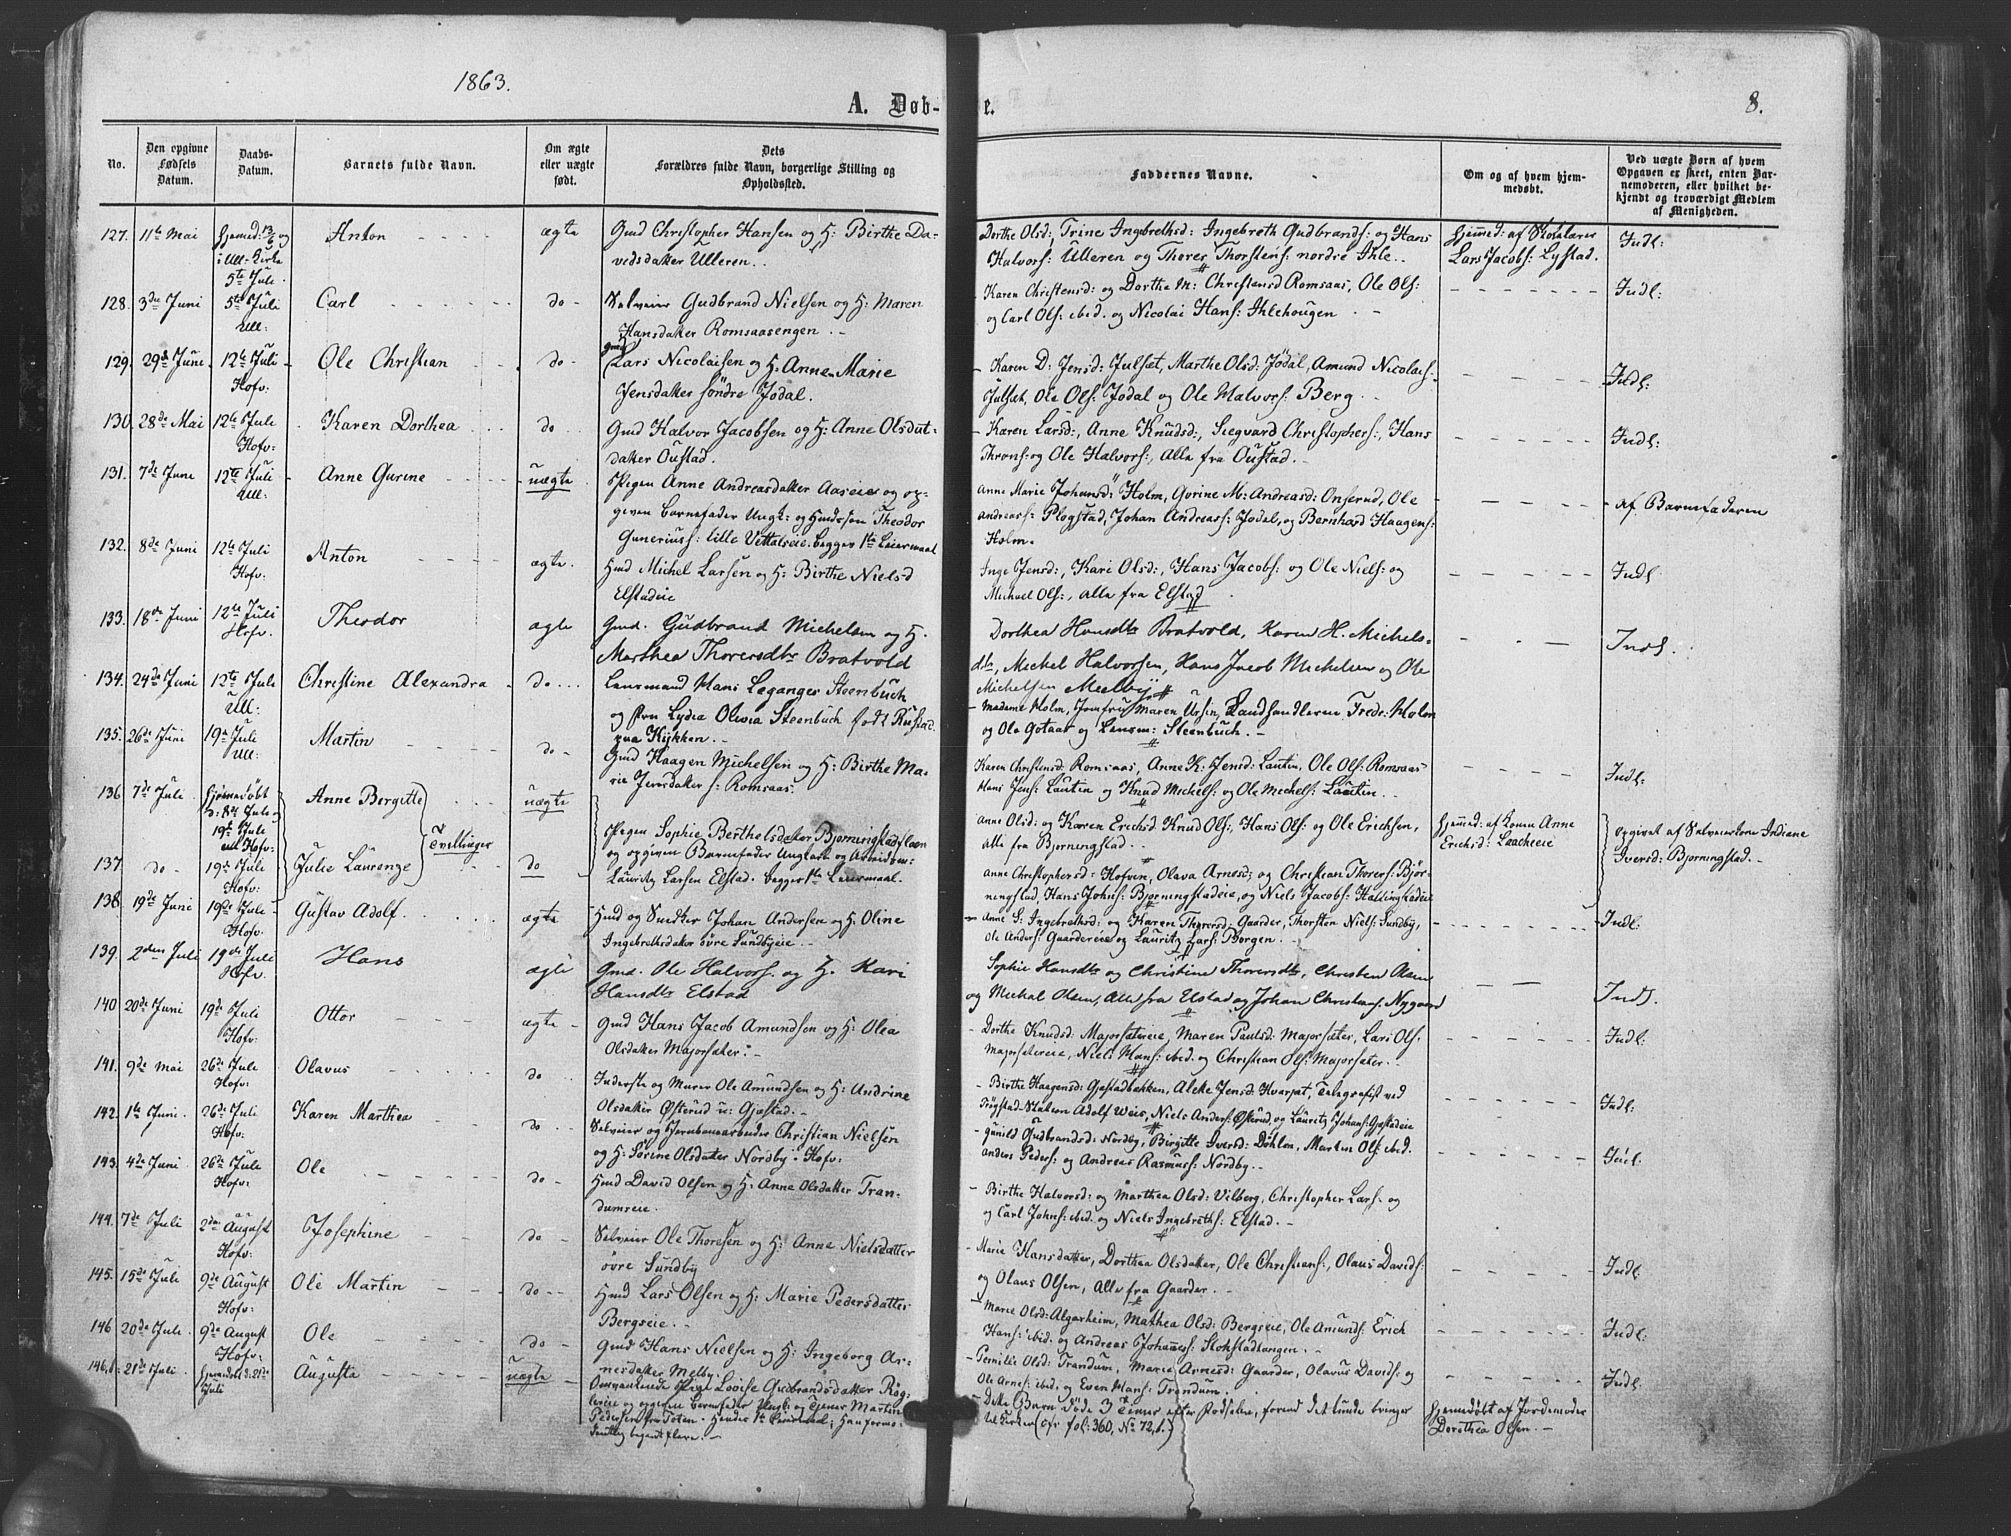 1863.
A. Døb-
e.
8.
No.
Den opgivne
Fødsels
Datum.
Daabs-
Datum.
Barnets fulde Navn.
Om ægte
eller uægte
født.
Dets
Forældres fulde Navn, borgerlige Stilling og
Opholdssted.
Faddernes Navne.
Om og af hvem hjem-
medøbt.
Ved uægte Børn af hvem
Opgaven er skeet, enten Bar-
nemoderen, eller hvilket be-
kjendt og troværdigt Medlem
af Menigheden.
127. 11te Mai
hjemmed: 13/6 og
i Ull: Kirke
5te Juli.
Anton
ægte
Gmd Christopher Hansen og H: Birthe Da-
vidsdatter Ulleren.
Dorthe Olsd: Trine Ingebrethsd: Ingebreth Gudbrands: og Hans
Halvors: Ulleren og Thorer Thorstens: nordre Ihle.
hjemmed: af Skolelærer
Lars Jacobs: Lystad.
Indl:
128. 3die Juni
5te Juli
Ull:
Carl
do
Selveier Gudbrand Nielsen og H: Maren
Hansdatter Romsaasengen.
Karen Christensd: og Dorthe M: Christensd Romsaas, Ole Ols:
og Carl Ols: ibid. og Nicolai Hans: Ihlehougen
Indl:
129. 29de Juni
12te Juli
Hofv:
Ole Christian
do
Gmd
Lars Nicolaisen og H: Anne Marie
Jensdatter söndre Jödal.
Karen D: Jensd: Julset, Marthe Olsd: Jödal, Amund Nicolais:
Julset, Ole Ols: Jödal og Ole Halvors: Berg
Indl:
130. 28de Mai
12te Juli
Hofv:
Karen Dorthea
do
Gmd Halvor Jacobsen og H: Anne Olsdat-
datter Oustad.
Karen Larsd:, Anne Knudsd:, Siegvard Christophers:, Hans
Throns: og Ole Halvors:, Alle fra Oustad.
Indl:
131. 7de Juni
12te Juli
Ull:
Anne Gurine
uægte
Pigen Anne Andreasdatter Aaseie og op-
given Barnefader Ungk: og Husmdssøn Theodor
Guneriuss: lille Vettalseie. begges 1ste Leiermaal
Anne Marie Johansd: Holm, Gorine M: Andreasd: Onsrud, Ole
Andreass: Plogstad, Johan Andreass: Jödal, og Bernhard Haagens:
Holm.
af Barnefaderen
132. 8de Juni
12te Juli
Hofv:
Anton
ægte.
Hmd Michel Larsen og H: Birthe Nielsd
Elstadeie
Inge Jensd:, Kari Olsd:, Hans Jacobs: og Ole Niels: og
Michael Ols:, alle fra Elstad
Indl:
133. 18de Juni
12te Juli
Hofv.
Theodor
ægte
Gmd. Gudbrand Michelsen og H.
Marthea Thorersdtr Bratvold
Dorthea Hansdtr Bratvold, Karen H. Michels-
dtr, Michel Halvorsen, Hans Jacob Michelsen og Ole
Michelsen Melby
Indl.
134. 24de Juni
12te Juli
Ull:
Christine Alexandra
do
Lensmand Hans Leganger Steenbuch
og Fru Lydia Olivia Steenbuch født Rustad
paa Kykken.
Madame Holm, Jomfru Maren Ursin, Landhandlerne Fredr: Holm
og Ole Gotaas og Lensm: Steenbuch.
135. 26de Juni
19de Juli
Ull:
Martin
do
Gmd Haagen Michelsen og H: Birthe Ma-
rie Jensdatter s: Romsaas.
Karen Christensd: Romsaas, Anne K: Jensd: Lautin, Ole Ols: Romsaas
Hans Jens: Lautin og Knud Michels: og Ole Michels: Lautin.
Indl:
136 7de Juli
hjemmedöbt
d: 8de Juli
19de Juli
Hofv:
Anne Bergitte
Tvillinger
uægte
Pigen Sophie Berthelsdatter Bjørningstadsløen
og opgiven Barnefader Ungkarl og Arbeidsm:
Lauritz Larsen Elstad. begges 1ste Leiermaal.
Anne Olsd: og Karen Erichsd Knud Ols:, Hans Ols: og Ole Erichsen,
Alle fra Bjørningstad.
hjemmed: af Konen Anne
Erichsd: Laacheeie
opgivet af Selveierkone Indiane
Iversd: Bjørningstad.
137. do
19de Juli
Hofv:
Julie Laurenze
do
Anne Christophersd: Hofvin, Olava Arnesd: og Christian Thorers: Björ-
ningstad, Hans Johns: Bjørningstadeie, og Niels Jacobs:
138 19de Juni
19de Juli
Hofv.
Gustav Adolf.
ægte
Hmd og Smdtter Johan Andersen og H: Oline
Ingebrethsdatter övre Sundbyeie.
Anne S: Ingebrethsd: og Karen Thorersd: Gaarder, Thorsten Niels: Sundby,
Ole Anders: Gaardereie og Lauritz Lars: Borgen.
Indl:
139. 2den Juli
19de Juli
Hofv.
Hans
ægte
Gmd. Ole Halvors. og H. Kari
Hansdtr Elstad
Sophie Hansdtr og Christine Thorersdtr, Christen Olsen
og Michal Olsen, Alle fra Elstad og Johan Christians: Nygaard
Indl.
140 20de Juni
19de Juli
Hofv:
Otto
ægte
Gmd Hans Jacob Amundsen og H: Olea
Olsdatter Majorsæter:
Dorthe Knudsd: Majorsætereie, Maren Paulsd: Majorsæter, Lars Ols:
Majorsætereie, Niels Hans: ibid. og Christian Ols: Majorsæter.
Indl:
141. 9de Mai
26de Juli
Hofv:
Olavus
do
Inderste og Murer Ole Amundsen og H: Andrine
Olsdatter Østerud u: Gjæstad.
Birthe Haagensd: Gjæstadbakken, Aleke Jensd: Hvarpat, Telegrafist ved
Trögstad Station Adolf Weis, Niels Anders: Østerud, og Lauritz Johans: Gjæstadeie
Indl:
142. 1ste Juni
26de Juli
Hofv:
Karen Marthea
do
Selveier og Jernbanearbeider Christian Nielsen
og H: Sörine Olsdatter Nordby i Hofv:
Gunild Gudbrandsd: Nordby, Birgitte Iversd: Döhlen, Martin Ols: ibid.
Anders Peders: og Andreas Rasmuss: Nordby.
Indl:
143. 4de Juni
26de Juli
Hofv:
Ole
do
Hmd David Olsen og H: Anne Olsdatter Tran-
dumeie.
Birthe Halvorsd: og Marthea Olsd: Vilberg, Christopher Lars: og
og Carl Johns: ibid. og Niels Ingebreths: Elstad.
144. 7de Juli
2den August
Hofv:
Josephine
do
Selveier Ole Thoresen og H: Anne Nielsdatter
övre Sundby
Marie Hansdatter, Dorthea Olsdatter, Ole Christians:, Olaus Davids:
og Olaus Olsen, Alle fra Gaarder.
Indl:
145. 15de Juli
9de August
Hofv:
Ole Martin
do
Hmd Lars Olsen og H: Marie Pedersdatter
Bergseie.
Marie Olsd: Algarheim, Mathea Olsd: Bergseie, Ole Amunds: Erich
Hans: ibid. og Andreas Johanness: Stokstadtangen.
Indl:
146 20de Juli
9de August
Hofv:
Ole
do
Gmd Hans Nielsen og H: Ingeborg Ar-
nesdatter Melby.
Pernille Olsd: Trandum, Maria Arnesd: Gaarder, Olavus Davids: og
Ole Arnes: ibid. og Even Hans: Trandum.
Indl:
146,b. 21de Juli
hjemdøbt d: 21de
Juli
Augusta
uægte
Omvankende Pige Lovise Gudbrandsdatter Røg-
leeie og opgiven Barnefader Tjener Martin
Pedersen fra Toten. Hendes 1ste Leiermaal; Han formo-
dentlig begaaet flere.
Dette Barn døde 3 Timer efter Födselen, forend det kunde bringes
til Kirken (cfr fol: 360, No 72,b.)
hjemmedøbt af Jordemoder
Dorothea Olsen.